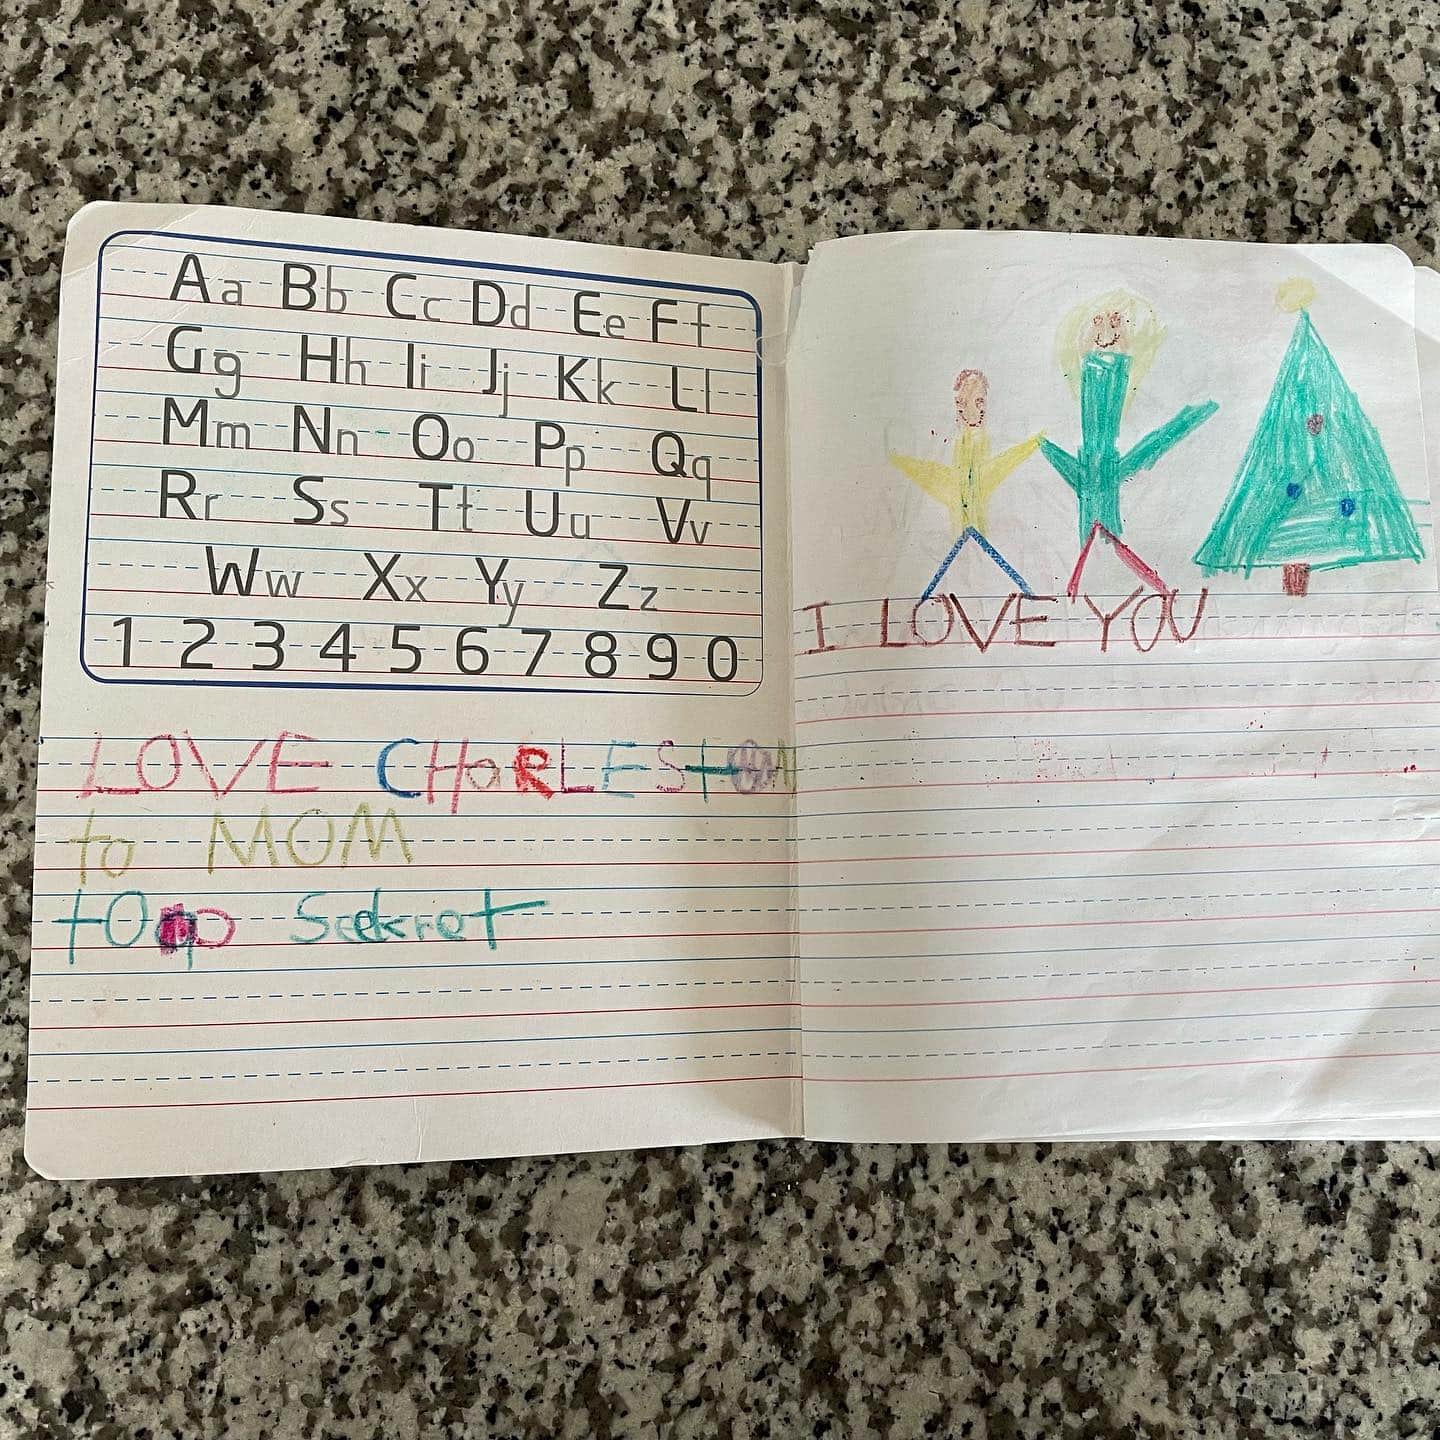 Aa Bb Cc Dd Ee Ff
Gg Hh Ii Jj Kk Ll
Mm Nn Oo Pp Qq
Rr Ss Tt Uu Vv
Ww Xx Yy Zz
1 2 3 4 5 6 7 8 9 0
LOVE CHaRLEStON
to MOM
top Seekret
I LOVE YOU